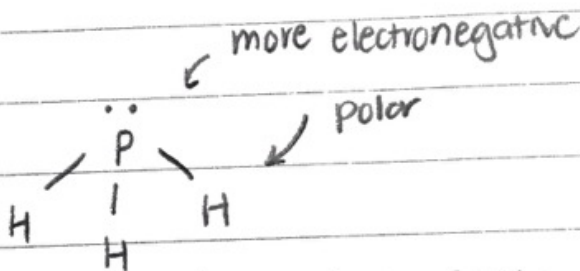 more electronegative
polar
P
H H
H